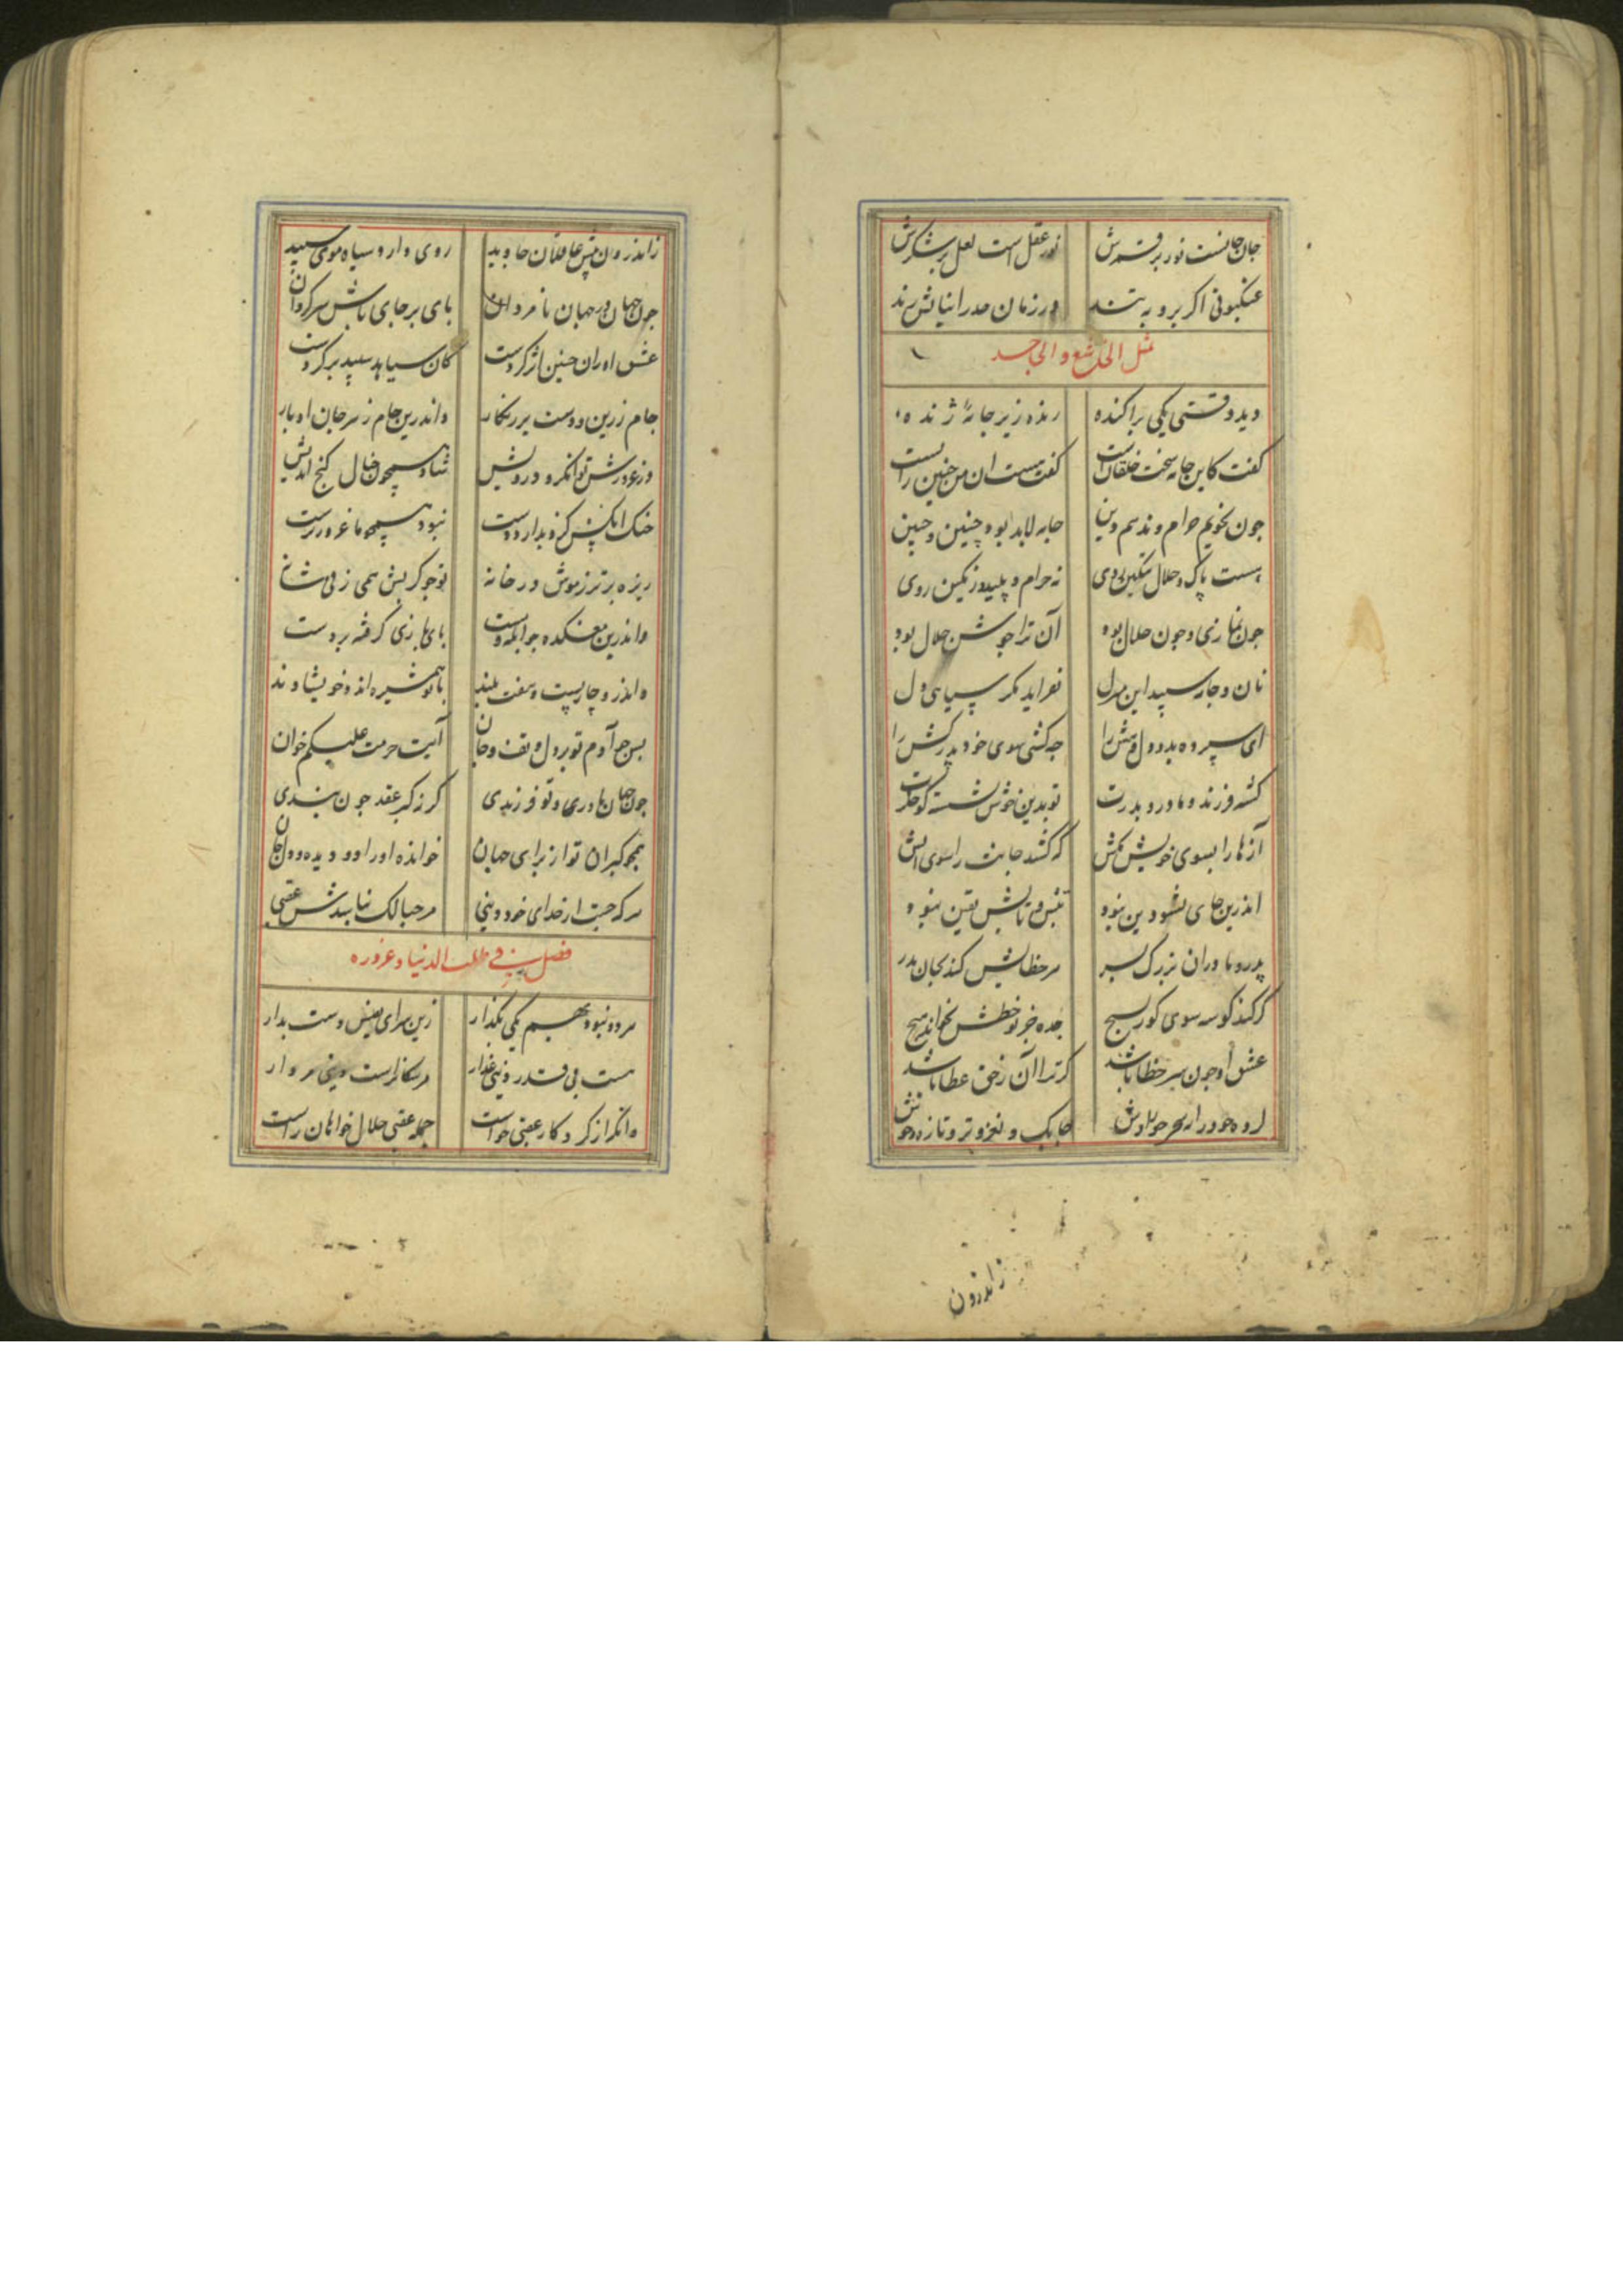 جان جانست نور بر قمرش نور عقل است لعل پر شکرش
عنکبوتی اکر برو به تند در زمان صدر انبیاش رند
مثل
دید وقتی یکی پراکنده زنده زیر جامهٔ ژنده
کفت کاین جامه سخت خلقانست کفت هست ان من چنین زانست
چون نجویم حرام و ندهم دین جامه لابد بود چنین و چنین
هست پاک و حلال ننکین روی نه حرام و پلید و رنکین روی
چون نمازی و چون حلال بود آن ترا جوشن جلال بود
نان و جامه سپید این
ای سپرده بدو دل و هش را چه کشی سوی خود پدرکش را
کشته فرزند و مادر و پدرت تو بدین خوش نشسته کو جکرت
آزها را بسوی خویش مکش که کشد جانت را سوی آتش
اندرین جای نشو دین نبود
پدر و مادران بزرک پسر هر خطایش کنند بجان پدر
کر کند کوسه سوی کور بسیج جده جز نو خطش نخواند هیچ
عشق او چون سر خطا باشد کر ترا آن زخی عطا باشد
چابک و نغز و تر و تازه و خوش
زاندرون
زاندرون پیش عاقلان جاوید روی دارد سیاه و موی سپید
چون جهان در جهان نامردان پای بر جای باش سرکردان
عشق او ران چنین اثر کردست کان سیاهه سپید بر کردست
جام زرین و دست پر ز نکار واندرین جام زهر جان اوبار
وز غرورش توانکر و درویش شاد همچون خیال کنج اندیش
خنک انکس کزو بدارد دست نبود همچو ما غرور پرست
ریزه برتر ز موش در خانه تو چو کربش همی زنی شانه
واندرین معتکده چو ابله و مست پای بازی کرفته بر دست
واندر و چار پست و هفت بلند با تو همشیره اند و خویشاوند
پس چو آدم تو بر دل و تف و جان آیت حرمت علیکم خوان
چون جهان مادری و تو فرزندی کر نه کبر عقد چون بندی
همچو کبران تو از برای جهان خوانده او را دو دیده و دل و جان
هرکه جست از خدای خود دنیی مرحبا لک نباشدش عقبی
فصل فی طلب الدنیا و غروره
هر دو نبود بهم یکی بکذار زین سرای نفیس دست بدار
هست بی قدر دنیی غدار مر سکانراست دنیی مردار
وانکه از کردکار عقبی خواست جمله عقبی حلال خواهان راست